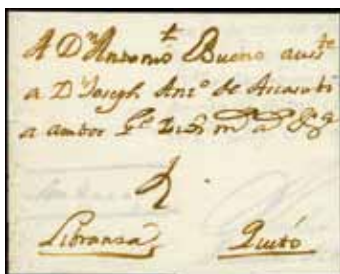 A Dn Antonio Bueno aus.te
a Dn Joseph Anto de Ascasubi
a ambos
Libransa, Quito